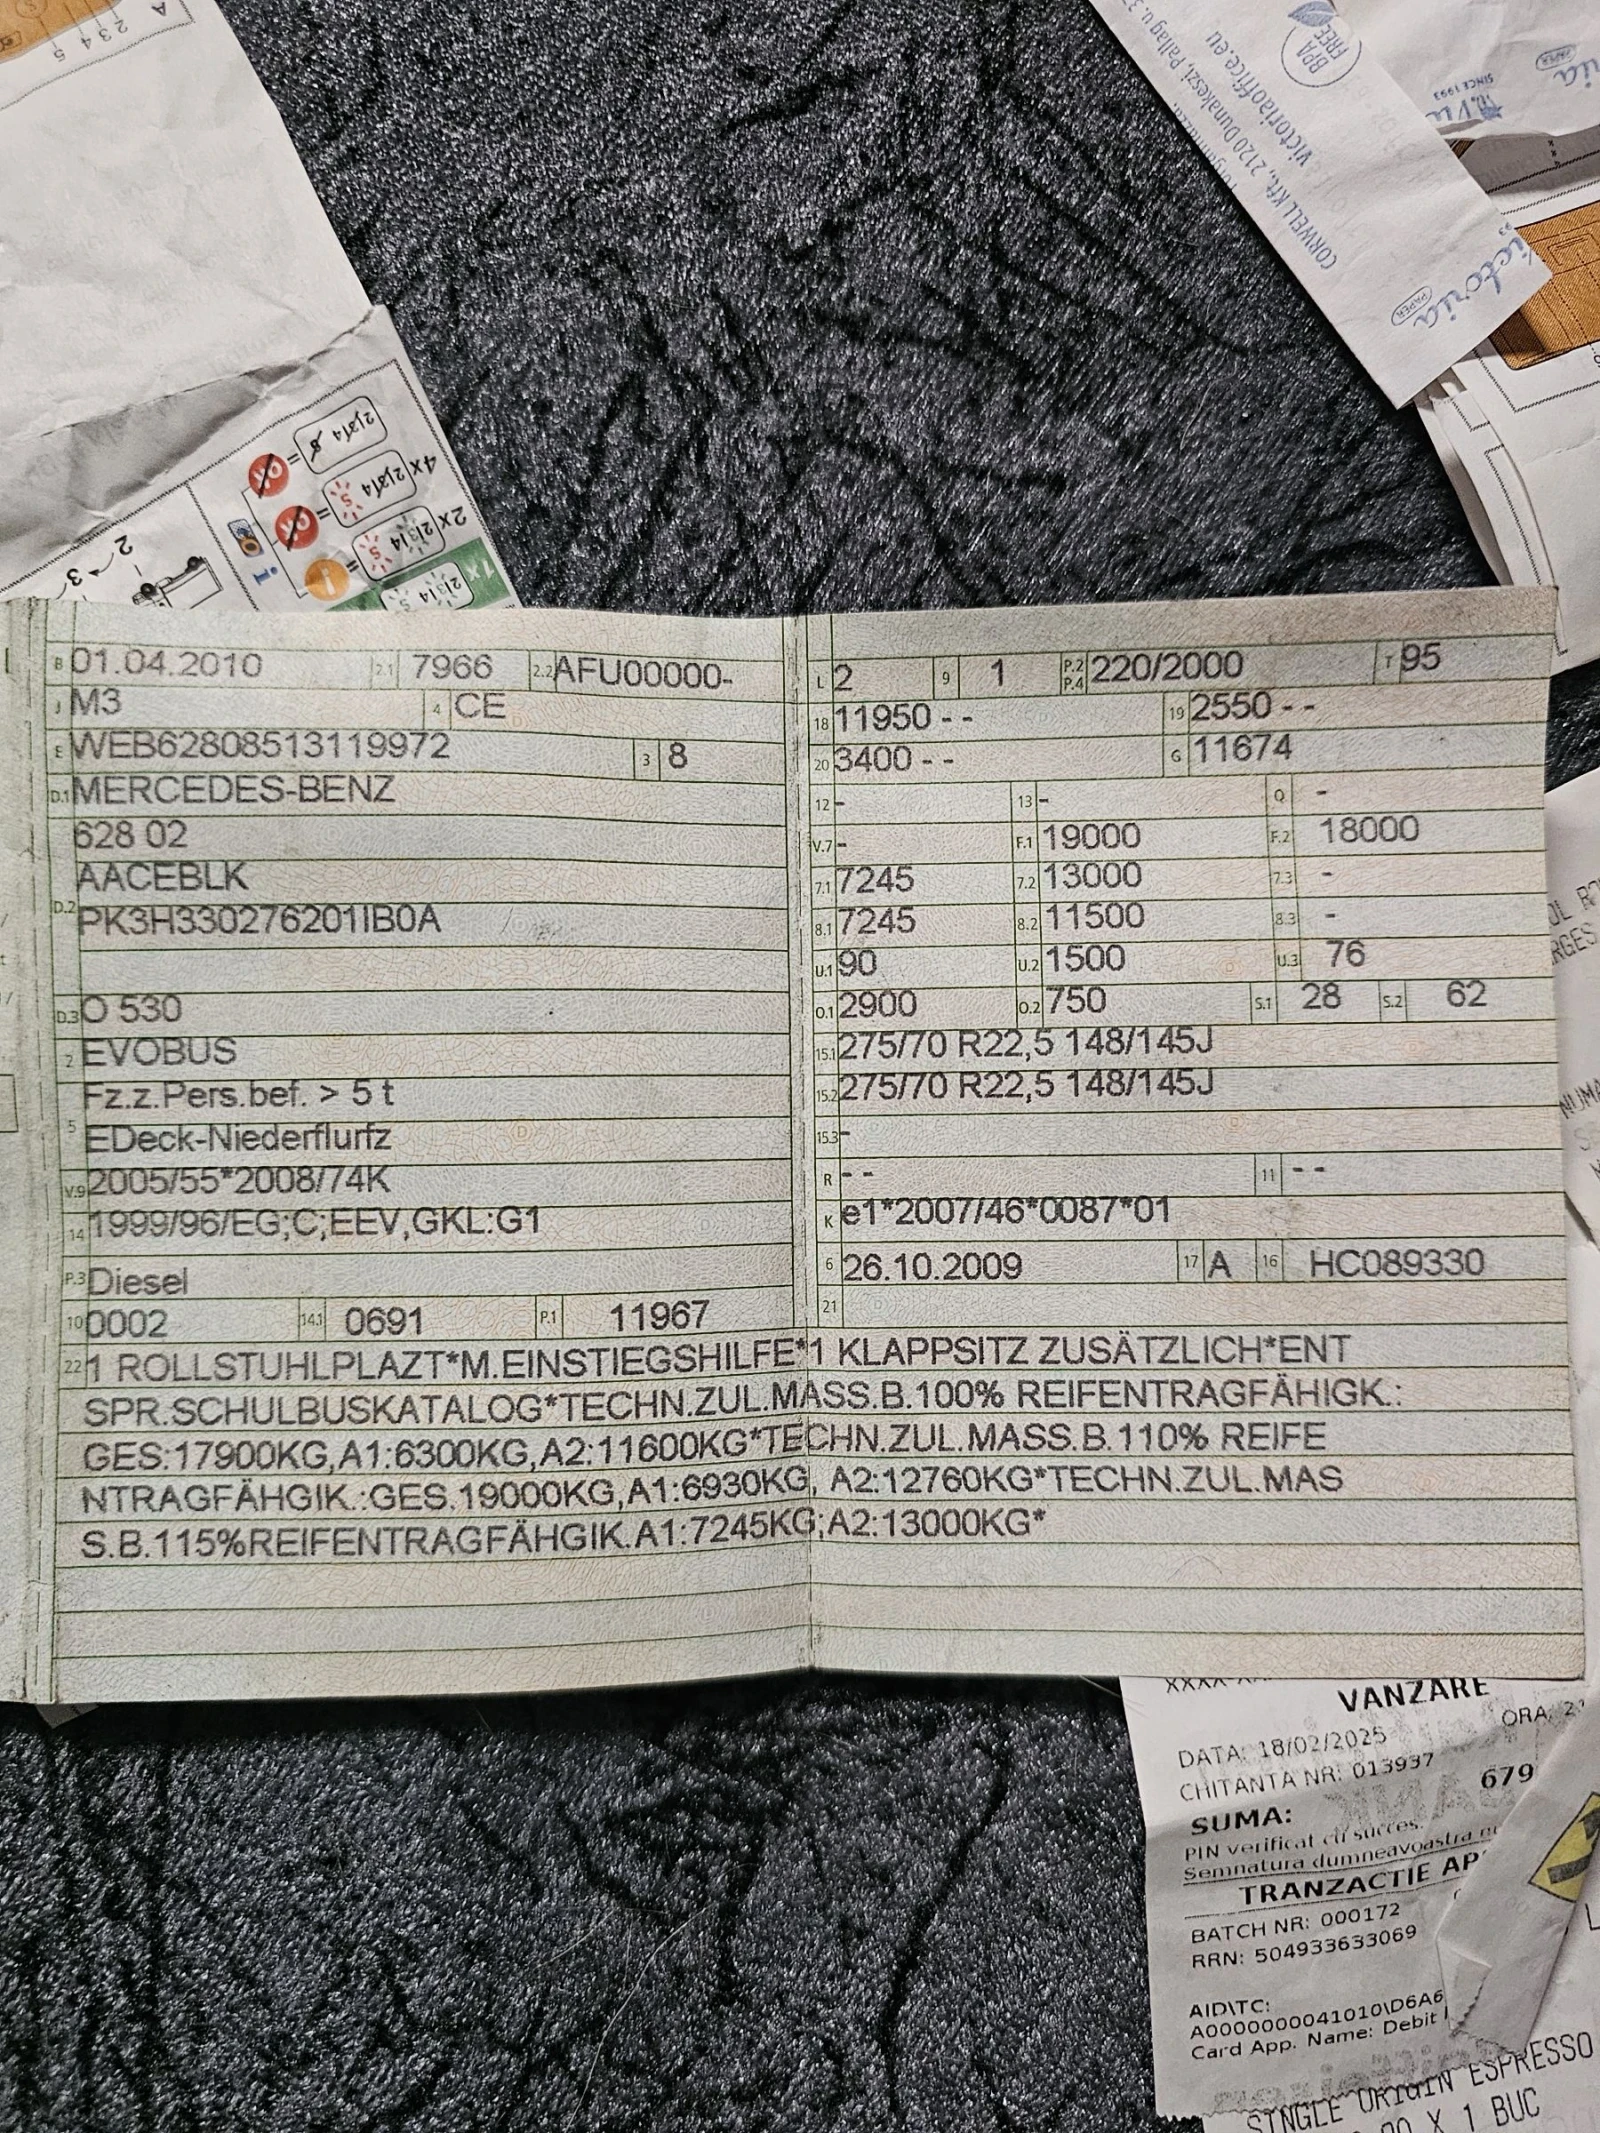 A
2 3 4 5
2|3|4 5
4x
2|3|4 5
2x
2|3|4 5
1x
2|3|4 5
i
2
3
BPA
FREE
victoriaoffice.eu
CORWELL Kft., 2120 Dunakeszi, Pallag u. 37
Forgalmazó:
Victoria
PAPER
SINCE 1993
PAPER
B 01.04.2010 2.1 7966 2.2 AFU00000-
J M3 4 CE
E WEB62808513119972 3 8
D.1 MERCEDES-BENZ
628 02
AACEBLK
D.2 PK3H330276201IB0A
D.3 O 530
2 EVOBUS
Fz.z.Pers.bef. > 5 t
5 EDeck-Niederflurfz
V.9 2005/55*2008/74K
14 1999/96/EG;C;EEV,GKL:G1
P.3 Diesel
10 0002 14.1 0691 P.1 11967
L 2 9 1 P.2 P.4 220/2000 T 95
18 11950 - - 19 2550 - -
20 3400 - - G 11674
12 - 13 - Q -
V.7 - F.1 19000 F.2 18000
7.1 7245 7.2 13000 7.3 -
8.1 7245 8.2 11500 8.3 -
U.1 90 U.2 1500 U.3 76
O.1 2900 O.2 750 S.1 28 S.2 62
15.1 275/70 R22,5 148/145J
15.2 275/70 R22,5 148/145J
15.3 -
R - - 11 - -
K e1*2007/46*0087*01
6 26.10.2009 17 A 16 HC089330
21
22 1 ROLLSTUHLPLAZT*M.EINSTIEGSHILFE*1 KLAPPSITZ ZUSÄTZLICH*ENT
SPR.SCHULBUSKATALOG*TECHN.ZUL.MASS.B.100% REIFENTRAGFÄHIGK.:
GES:17900KG,A1:6300KG,A2:11600KG*TECHN.ZUL.MASS.B.110% REIFE
NTRAGFÄHGIK.:GES.19000KG,A1:6930KG, A2:12760KG*TECHN.ZUL.MAS
S.B.115%REIFENTRAGFÄHGIK.A1:7245KG;A2:13000KG*
VANZARE
DATA: 18/02/2025 ORA:
CHITANTA NR: 013937
SUMA: 679
PIN verificat cu succes.
Semnatura dumneavoastra
TRANZACTIE AP
BATCH NR: 000172
RRN: 504933633069
AID\TC:
A0000000041010\D6A6
Card App. Name: Debit
SINGLE ORIGIN ESPRESSO
X 1 BUC